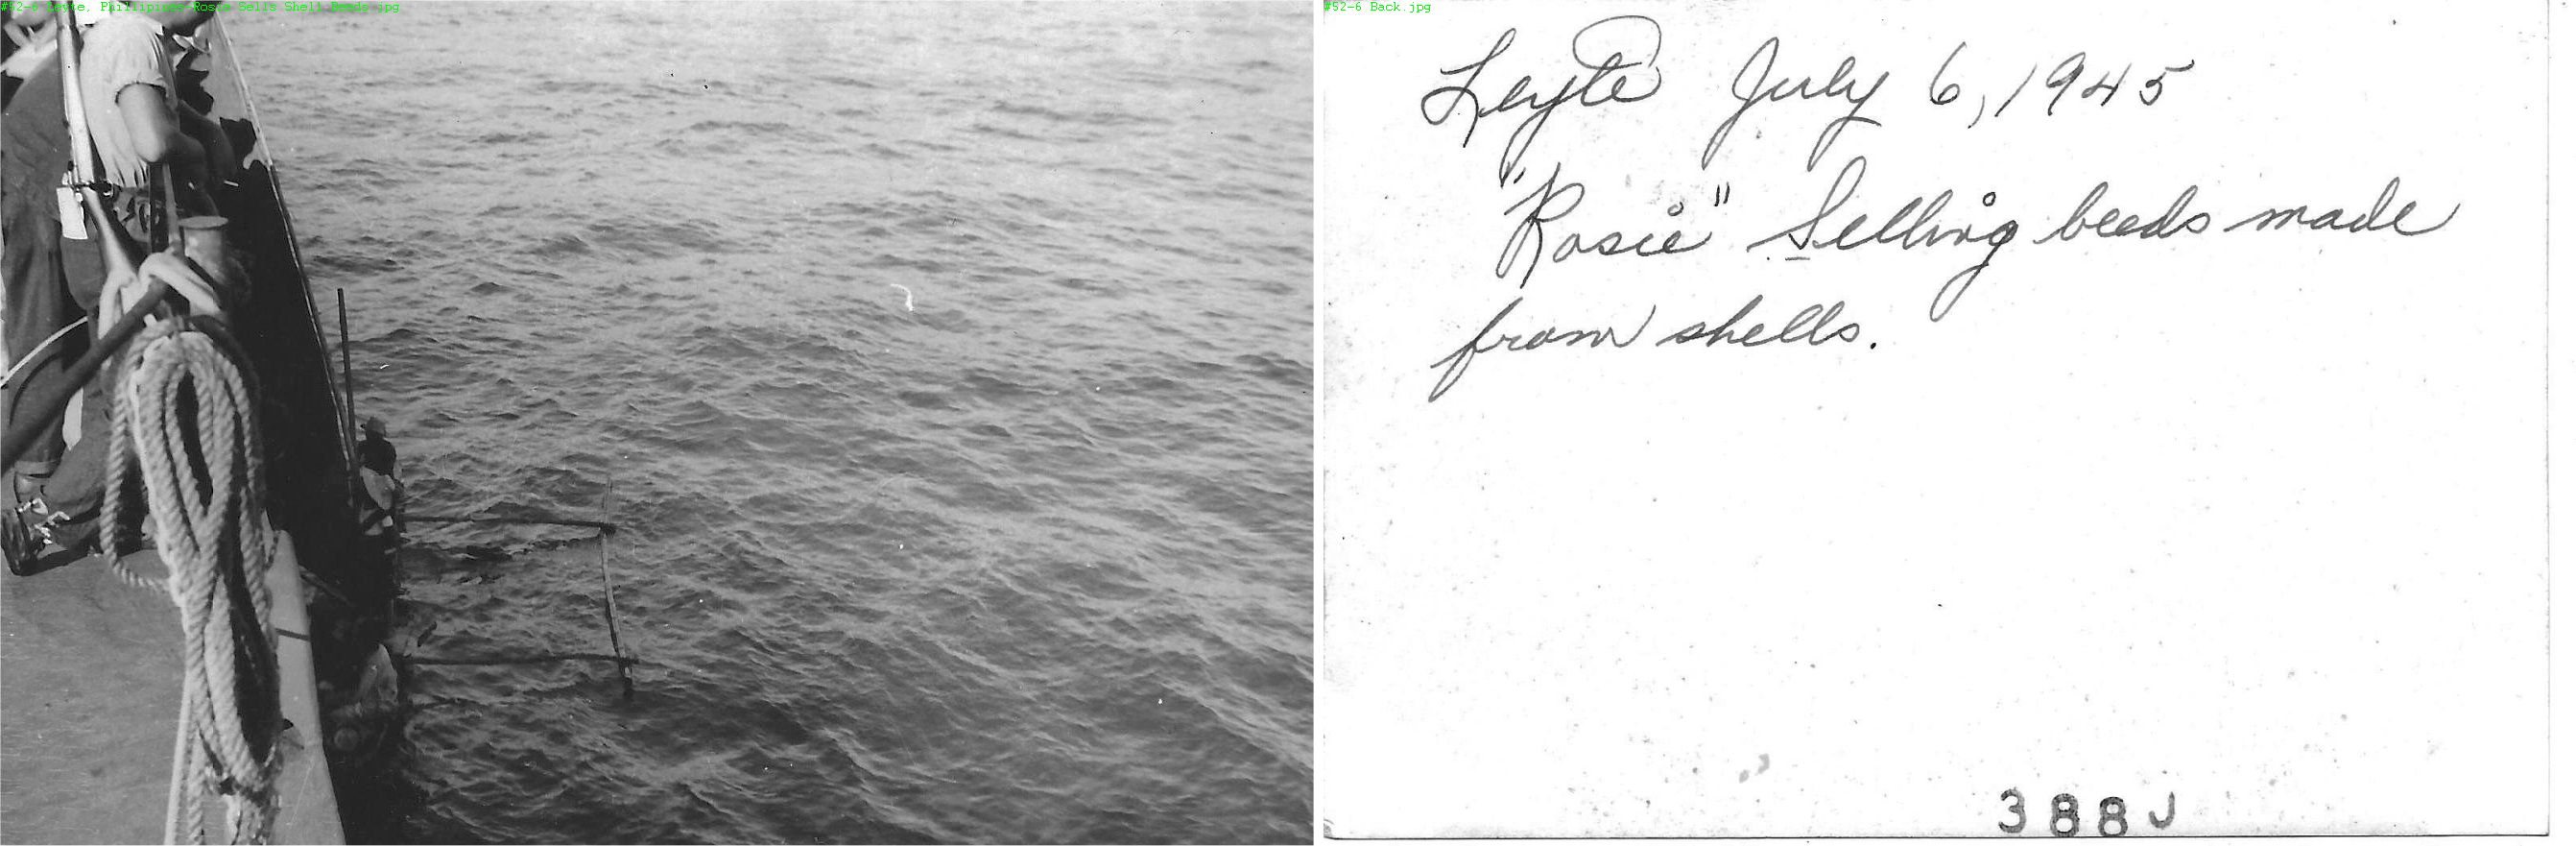 #52-6 Leyte, Phillipines-Rosie Sells Shell Beads.jpg
#52-6 Back.jpg
Leyte July 6, 1945
"Rosie" Selling beeds made
from shells.
388J